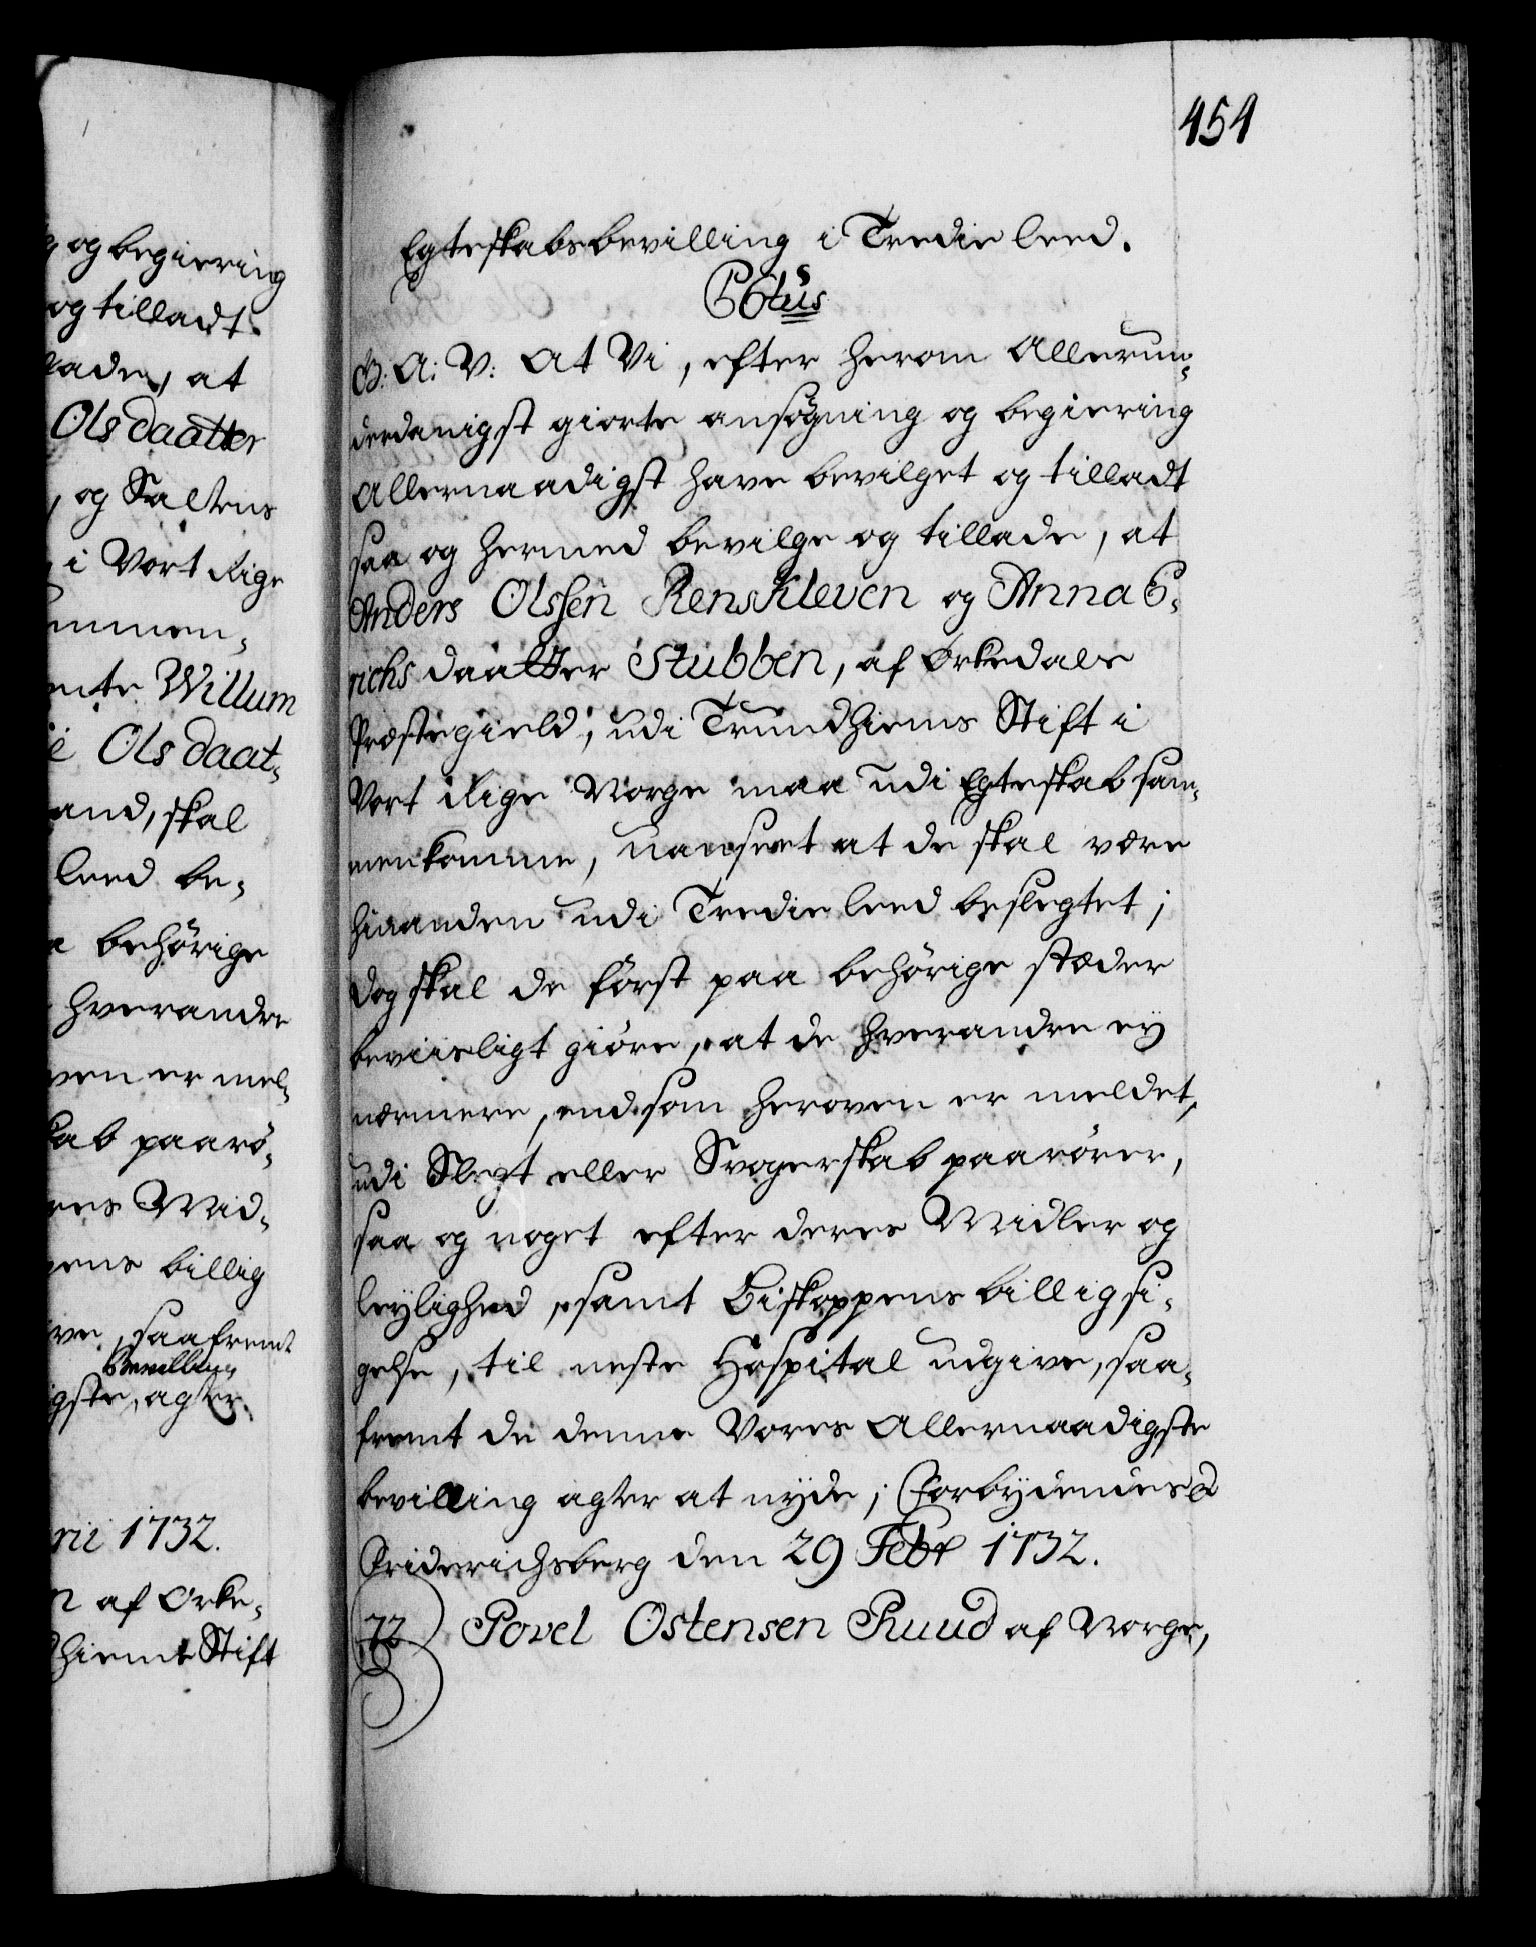 g og begiering
og tilladt
lade, at
Olsdaatter
, og Saltens
i Vort Rige
ammen-
ente Willum
e Olsdaat-
and, skal
leed be-
a behørige
hverandre
oven er mel-
kab paarø-
res Mid-
pens billig
ive, saafremt
Bevilling
igste, agter
rii 1732.
n af Orke-
dhiems Stift
454
Egteskabsbevilling i Tredie leed.
C6tus
G: A: V: At Vi, efter herom Allerun-
derdanigst giorte ansøgning og begiering
Allernaadigst have bevilget og tilladt
saa og hermed bevilge og tillade, at
Anders Olssen Renskleven og Anna E-
richsdaatter Stubben, af Orkedals
Præstegield, udi Trundhiems Stift i
Vort Rige Norge maa udi Egteskab sam-
menkomme, uanseet at de skal være
hinanden udi Tredie leed beslegtet;
Dog skal de først paa behørige stæder
beviisligt giøre, at de hverandre ey
nærmere, end som heroven er meldet,
udi Slegt eller Svogerskab paarører,
saa og noget efter deres Midler og
leylighed, samt Biskoppens billigsi-
gelse, til neste Hospital udgive, saa-
fremt de denne Vores Allernaadigste
bevilling agter at nyde; Forbydendes &
Friderichsberg den 29 Febr 1732.
72 Povel Ostensen Ruud af Norge,